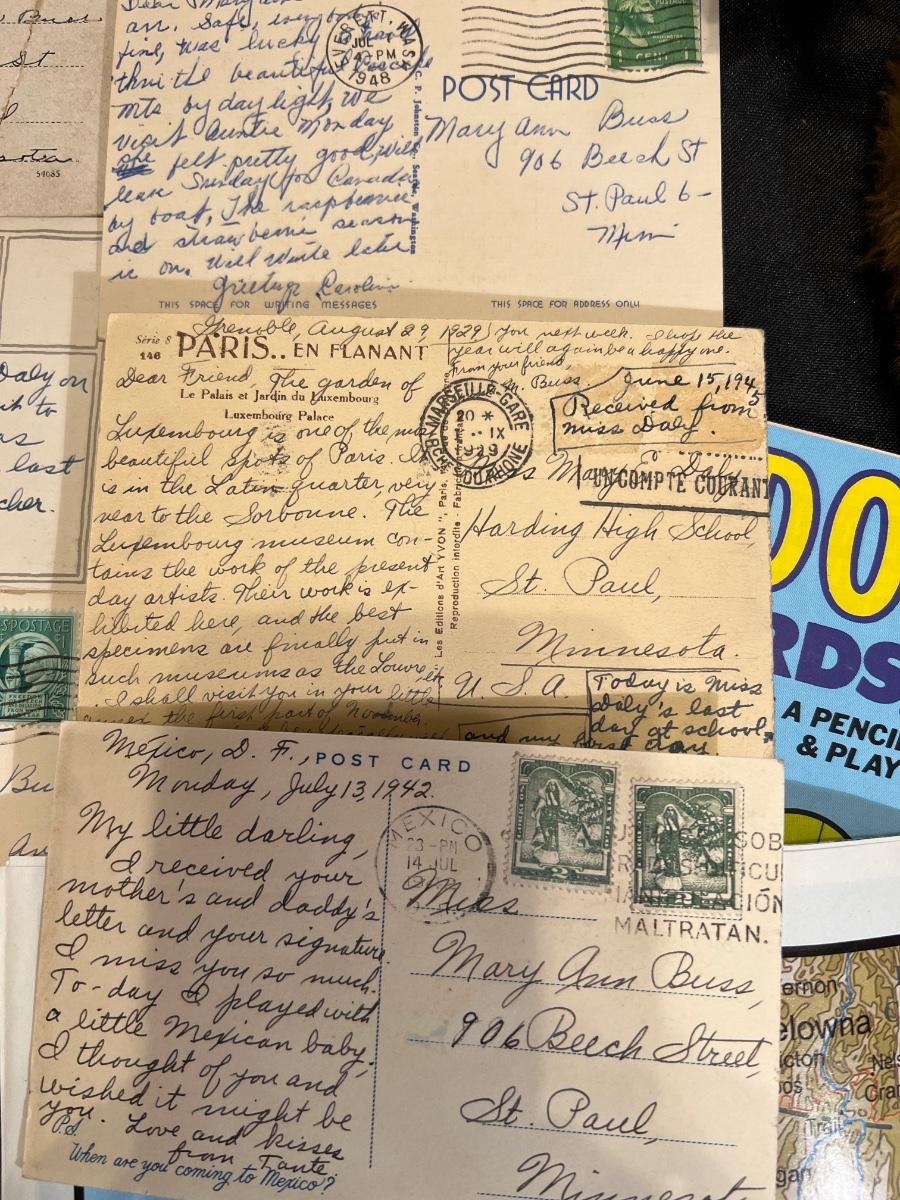 Buss
St
54085
Dear Mary Ann
arr. Safe, everybody
fine, was lucky
thru the beautiful Cascade
Mts by day light, We
visit Auntie Monday
she felt pretty good, will
leave Sunday for Canada
by boat, The raspberrie
and strawberrie season
is on. Will write later
Greetings Carolin
EVERETT, WASH
JUL
PM
1948
POSTAGE
1 CENT
C. P. Johnston Co. Seattle, Washington
POST CARD
Mary Ann Buss
906 Beech St
St. Paul 6-
Minn
THIS SPACE FOR WRITING MESSAGES
THIS SPACE FOR ADDRESS ONLY
Daly on
it to
as
last
cher.
S.POSTAGE
Bu
Grenoble, August 29, 1929
Série 8
146
PARIS.. EN FLANANT
Le Palais et Jardin du Luxembourg
Luxembourg Palace
Dear Friend, The garden of
Luxembourg is one of the most
beautiful spots of Paris. It
is in the Latin quarter, very
near to the Sorbonne. The
Luxembourg museum con-
tains the work of the present
day artists. Their work is ex-
hibited here, and the best
specimens are finally put in
such museums as the Louvre, etc.
I shall visit you in your little
the first part of November.
you next week. I hope the
year will again be a happy one.
From your friend,
M. Buss.
June 15, 194
Received from
Miss Daly.
MARSEILLE-GARE
20 *
IX
1929
Bches DU RHONE
UN COMPTE COURANT
Les Editions d'Art YVON", Paris.
Reproduction interdite - Fabrication française
Miss Mary E. Daly
Harding High School,
St. Paul,
Minnesota.
U. S. A.
Today is Miss
Daly's last
day at school,
and my first day
00
RDS
A PENCIL
& PLAY
México, D. F.,
POST CARD
Monday, July 13, 1942.
My little darling,
I received your
mother's and daddy's
letter and your signature.
I miss you so much.
To-day I played with
a little Mexican baby;
I thought of you and
wished it might be
you. Love and kisses
from Tante
P.S.
When are you coming to Mexico!?
MEXICO
23 - PM
14 JUL
MALTRATAN.
Miss
Mary Ann Buss,
906 Beech Street,
St. Paul,
Minnesot
ernon
elowna
icton
Nels
Cra
Trail